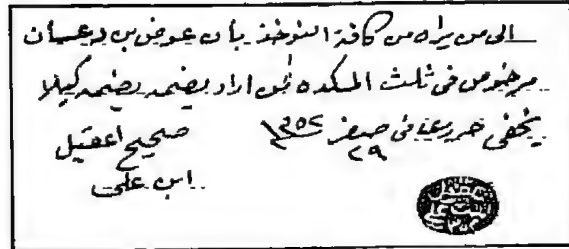 الى من يراه من كافة النوخذ بأن عوض بن دعسان
مرخوص في ثلث المسكده فمن اراد يضمد يضمد كيلا
يخفى حرر عنا في صفر ٢٩ ١٣٥٢
صحيح اعقيل
ابن علي